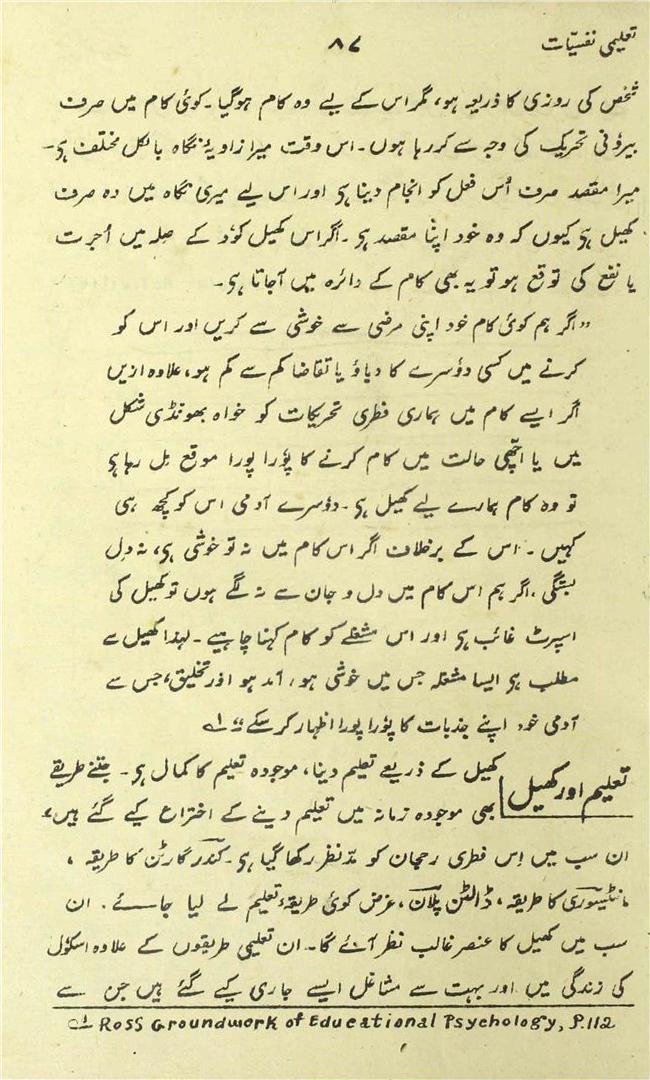 تعلیمی نفسیّات
۸۷
شخص کی روزی کا ذریعہ ہو، مگر اس کے لیے وہ کام ہوگیا۔ کوئی کام میں صرف
بیرؤنی تحریک کی وجہ سے کر رہا ہوں۔ اس وقت میرا زاویۂ نگاہ بالکل مختلف ہی۔
میرا مقصد صرف اُس فعل کو انجام دینا ہی اور اس لیے میری نگاہ میں وہ صرف
کھیل ہی کیوں کہ وہ خود اپنا مقصد ہی۔ اگر اس کھیل کؤد کے صلہ میں اُجرت
یا نفع کی توقع ہو تو یہ بھی کام کے دائرہ میں آجاتا ہی۔
"اگر ہم کوئی کام خود اپنی مرضی سے خوشی سے کریں اور اس کو
کرنے میں کسی دؤسرے کا دباؤ یا تقاضا کم سے کم ہو، علاوہ ازیں
اگر ایسے کام میں ہماری فطری تحریکات کو خواہ بھونڈی شکل
میں یا اچھّی حالت میں کام کرنے کا پؤرا پورا موقع مِل رہا ہی
تو وہ کام ہمارے لیے کھیل ہی۔ دؤسرے آدمی اس کو کچھ ہی
کہیں۔ اس کے برخلاف اگر اس کام میں نہ تو خوشی ہی، نہ دِل
بستگی، اگر ہم اس کام میں دل و جان سے نہ لگے ہوں تو کھیل کی
اسپرٹ غائب ہی اور اس مشغلے کو کام کہنا چاہیے۔ لہذا کھیل سے
مطلب ہی ایسا مشغلہ جس میں خوشی ہو، آمد ہو اور تخلیق، جس سے
آدمی خود اپنے جذبات کا پؤرا پورا اظہار کر سکے" لہ
تعلیم اور کھیل
کھیل کے ذریعے تعلیم دینا، موجودہ تعلیم کا کمال ہی۔ جتنے طریقے
بھی موجودہ زمانہ میں تعلیم دینے کے اختراع کیے گئے ہیں،
ان سب میں اِس فطری رجحان کو مدّنظر رکھا گیا ہی۔ کنڈر گارٹن کا طریقہ،
مانٹیسوری کا طریقہ، ڈالٹن پلان، غرض کوئی طریقۂ تعلیم لے لیا جائے۔ ان
سب میں کھیل کا عنصر غالب نظر آئے گا۔ ان تعلیمی طریقوں کے علاوہ اسکؤل
کی زندگی میں اور بہت سے مشاغل ایسے جاری کیے گئے ہیں جن سے
لہ Ross Groundwork of Educational Psychology, P.112